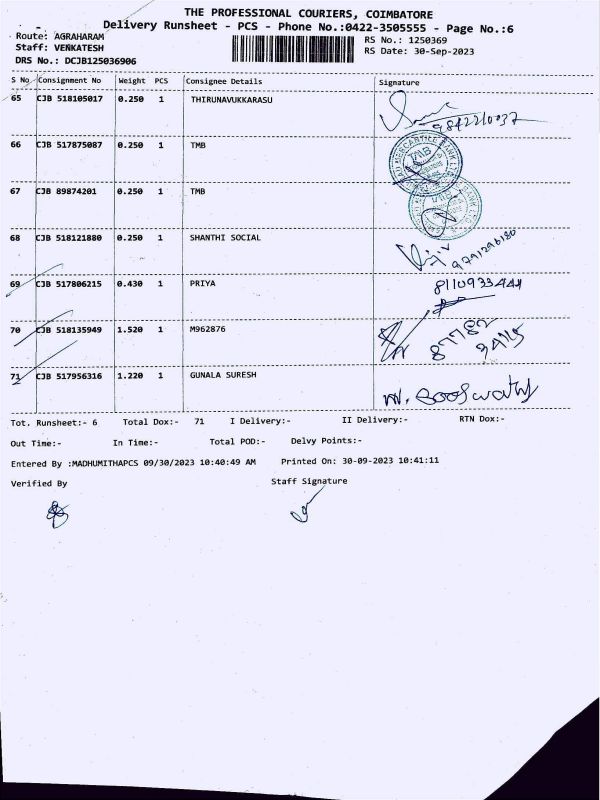 THE PROFESSIONAL COURIERS, COIMBATORE
Delivery Runsheet - PCS - Phone No.:0422-3505555 - Page No.:6
Route: AGRAHARAM
RS No.: 1250369
Staff: VENKATESH
RS Date: 30-Sep-2023
DRS No.: DCJB125036906
S No Consignment No Weight PCS Consignee Details Signature
65 CJB 518105017 0.250 1 THIRUNAVUKKARASU
9842210037
66 CJB 517875087 0.250 1 TMB
TMB
67 CJB 89874201 0.250 1 TMB
68 CJB 518121880 0.250 1 SHANTHI SOCIAL
9791296180
69 CJB 517806215 0.430 1 PRIYA
8110933444
70 CJB 518135949 1.520 1 M962876
71 CJB 517956316 1.220 1 GUNALA SURESH
Tot. Runsheet:- 6 Total Dox:- 71 I Delivery:- II Delivery:- RTN Dox:-
Out Time:- In Time:- Total POD:- Delvy Points:-
Entered By :MADHUMITHAPCS 09/30/2023 10:40:49 AM Printed On: 30-09-2023 10:41:11
Verified By Staff Signature